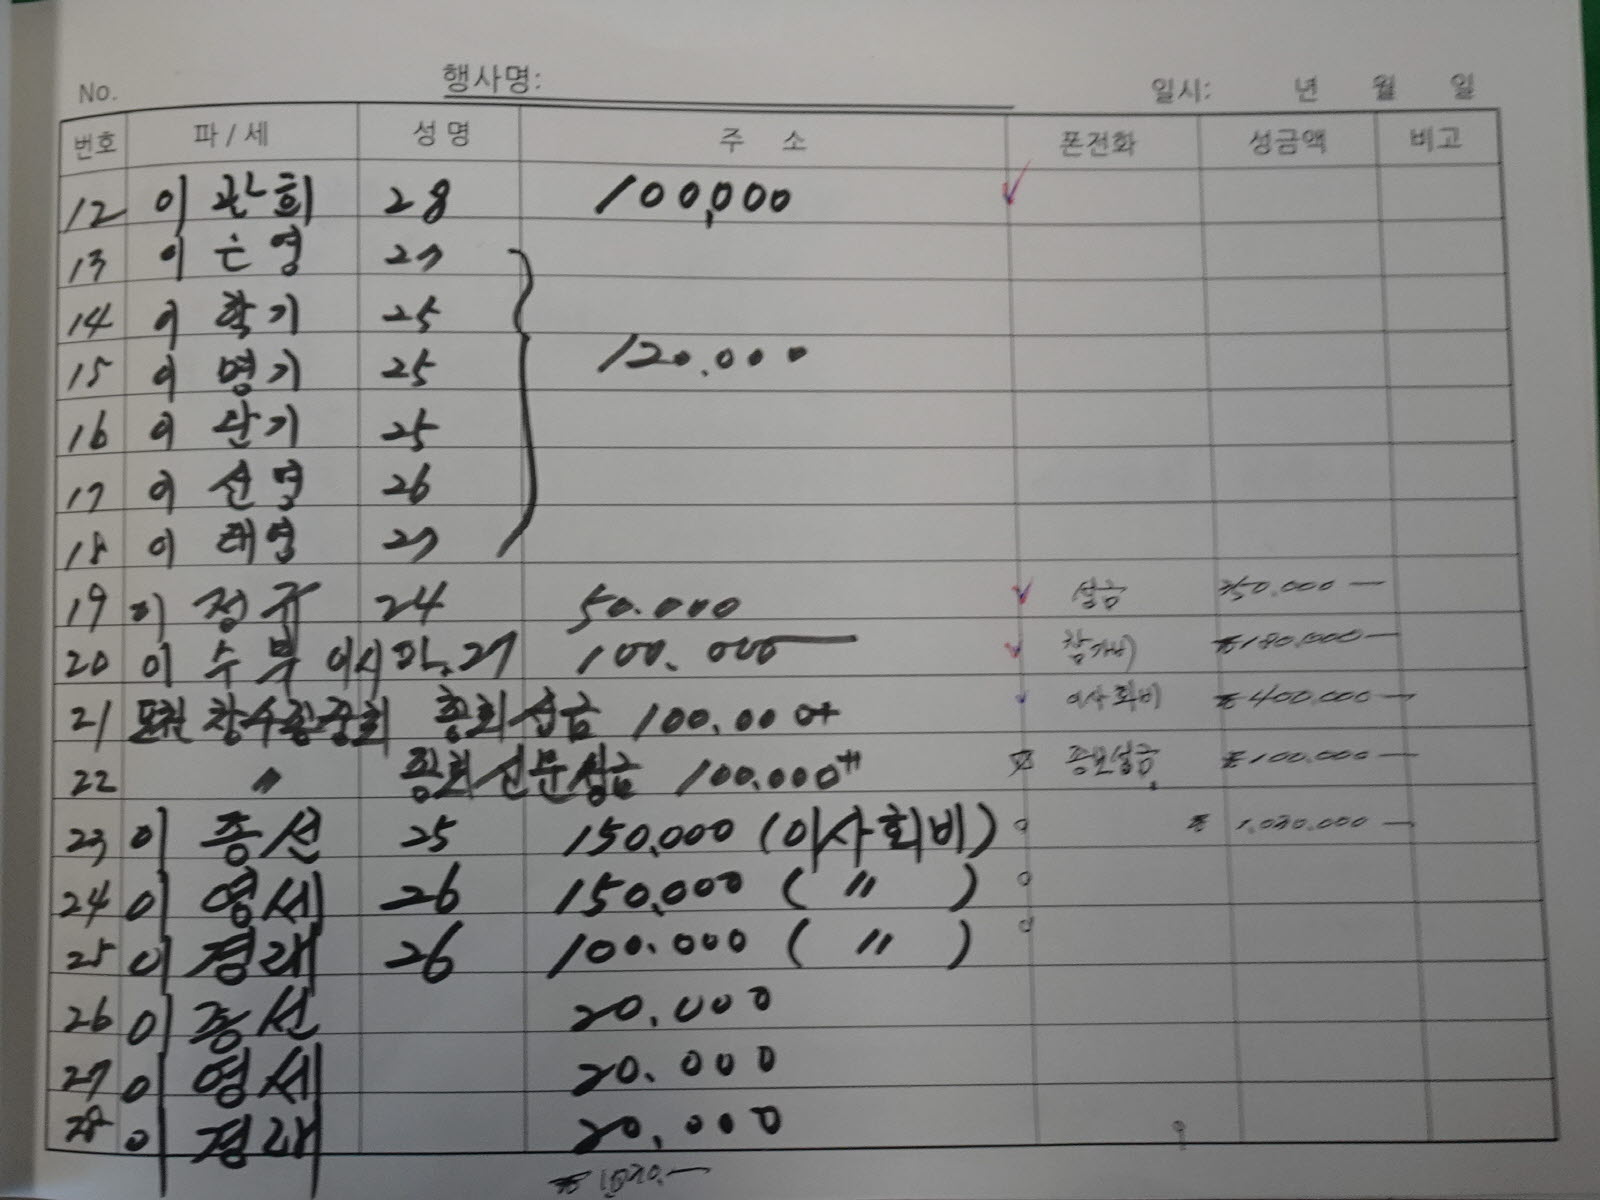 No. 행사명: 일시: 년 월 일
번호 파/세 성명 주소 폰전화 성금액 비고
12 이관희 28 100,000
13 이은영 27
14 이학기 25
15 이명기 25 120.000
16 이산기 25
17 이선영 26
18 이태영 27
19 이정규 24 50.000 성금 350.000
20 이수복 이사 27 100.000 참가비 180,000
21 포천 창수종중회 총회성금 100.000 이사회비 400.000
22 〃 종회신문성금 100.000 종보성금 100.000
23 이종선 25 150,000 (이사회비) 1,030.000
24 이영세 26 150,000 ( 〃 )
25 이경래 26 100.000 ( 〃 )
26 이종선 20.000
27 이영세 20.000
28 이경래 20,000